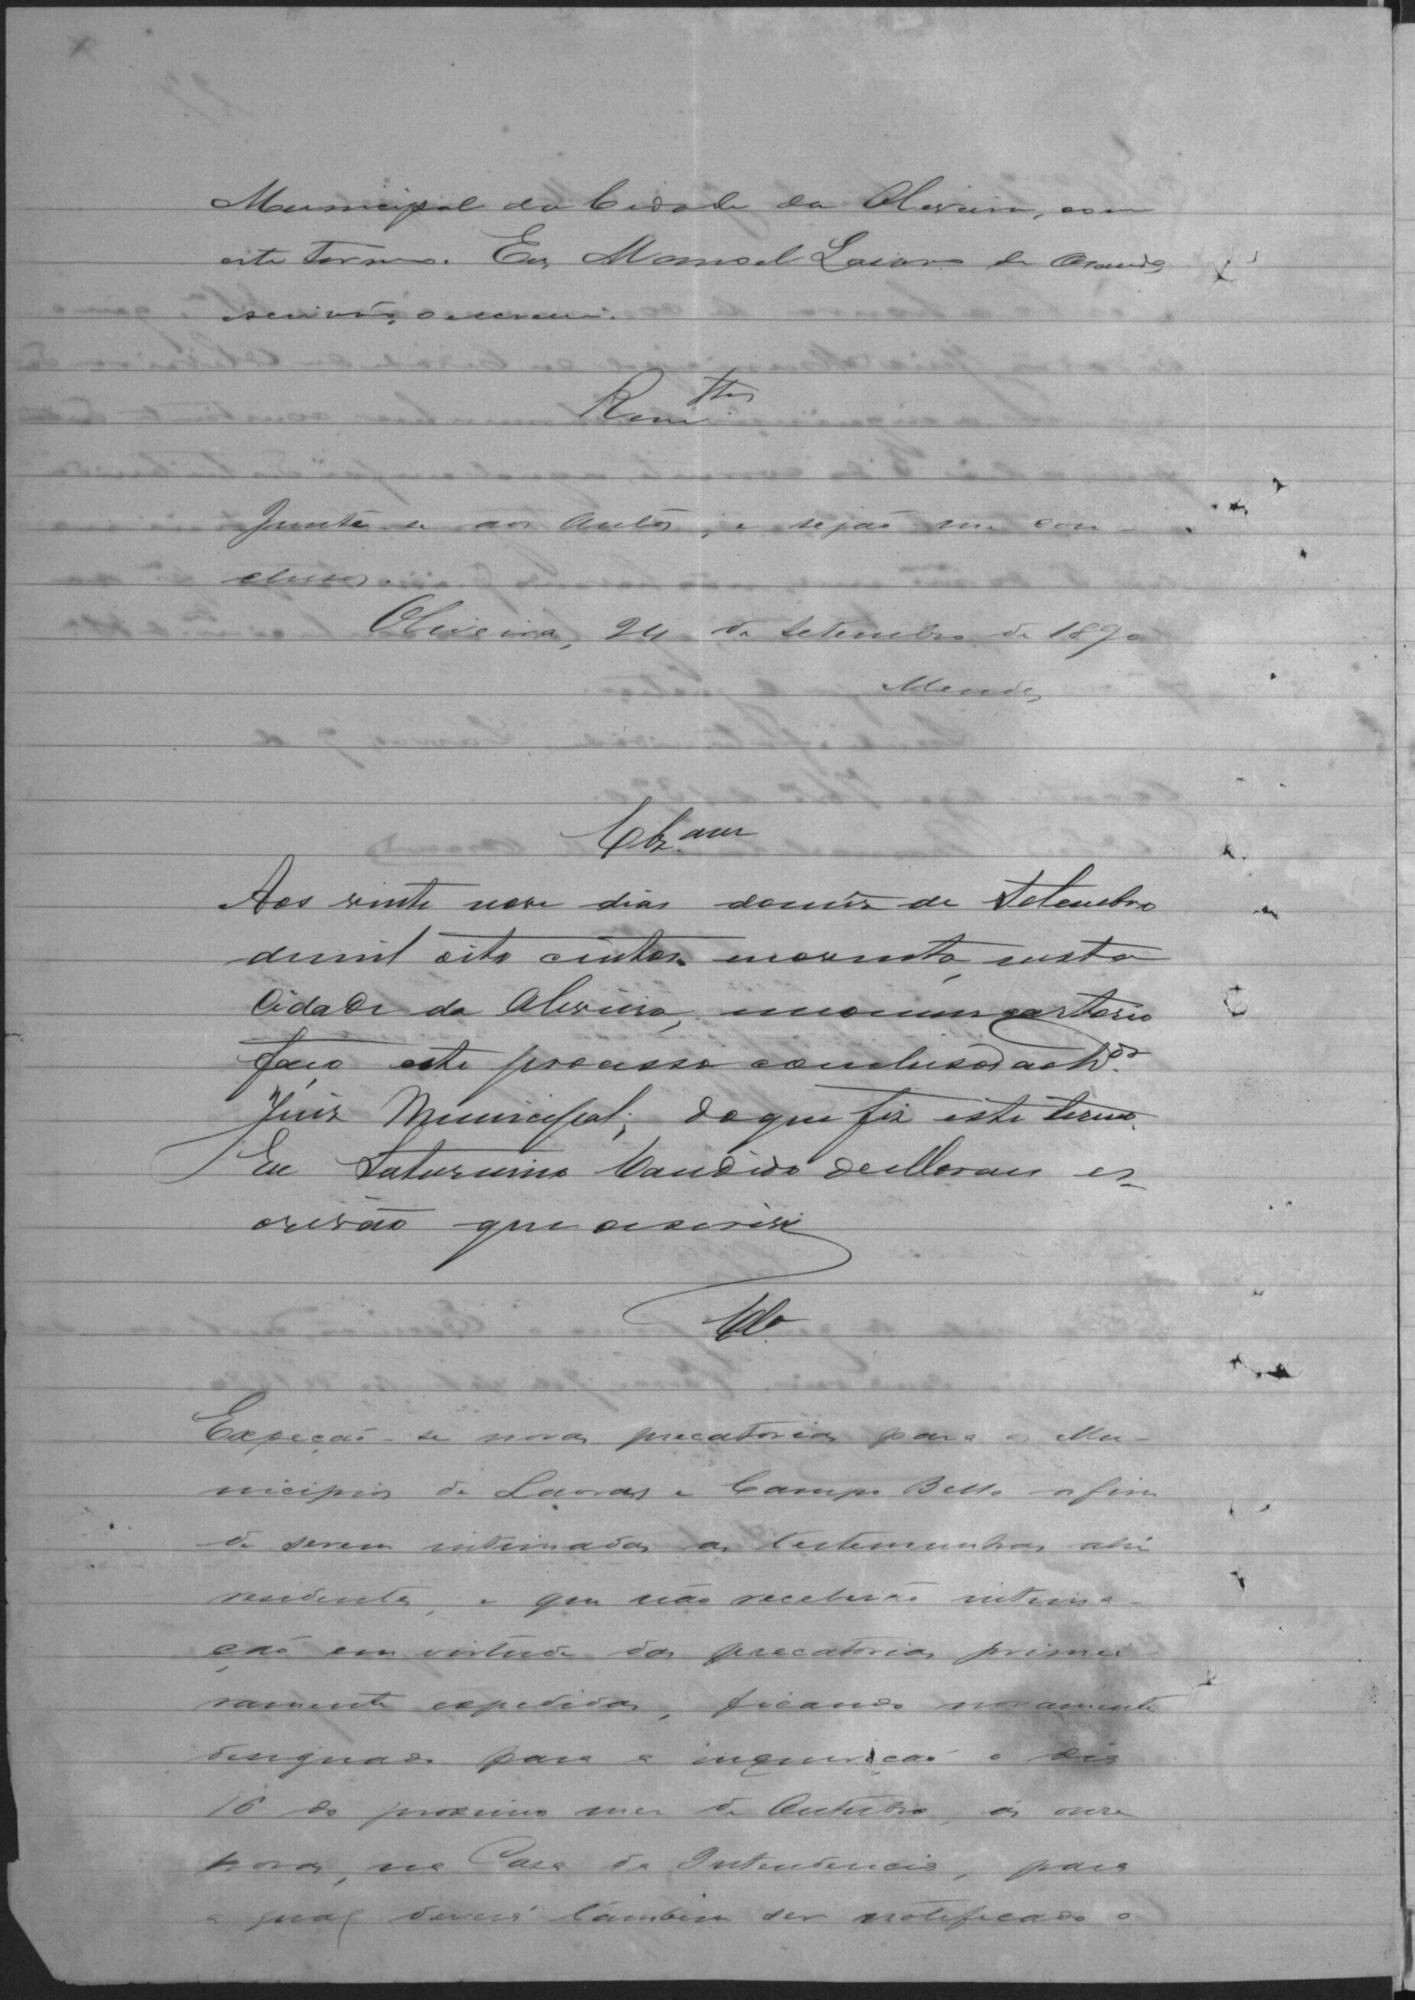 Municipal da Cidade da Oliveira, com
este termo. Eu, Manoel Lasaro de Asevedo
escrivão, o escrevi.
Rem.ttos
Junte-se aos autos, e sejão me con-
clusos.
Oliveira, 24 de Setembro de 1890
Mendes
Clz.am
Aos vinte nove dias domez de Setembro
de mil oito centos e noventa, nesta
Cidade da Oliveira, em o meu cartorio
faço este processo concluso ao Dr.
Juiz Municipal; do que fiz este termo.
Eu Saturnino Candido de Moraes es-
crivão que o escrivi
Clo.
Expeção-se novas precatorias para os Mu-
nicipios de Lavras e Campo Bello afim
de serem intimadas as testemunhas ahi
residentes, e que não receberão intima-
ção em virtude das precatorias primei-
ramente expedidas, ficando novamente
designado para a inquirição o dia
16 do proximo mez de Outubro, ás onze
horas, na Casa da Intendencia, para
a qual deverá tambem ser notificado o